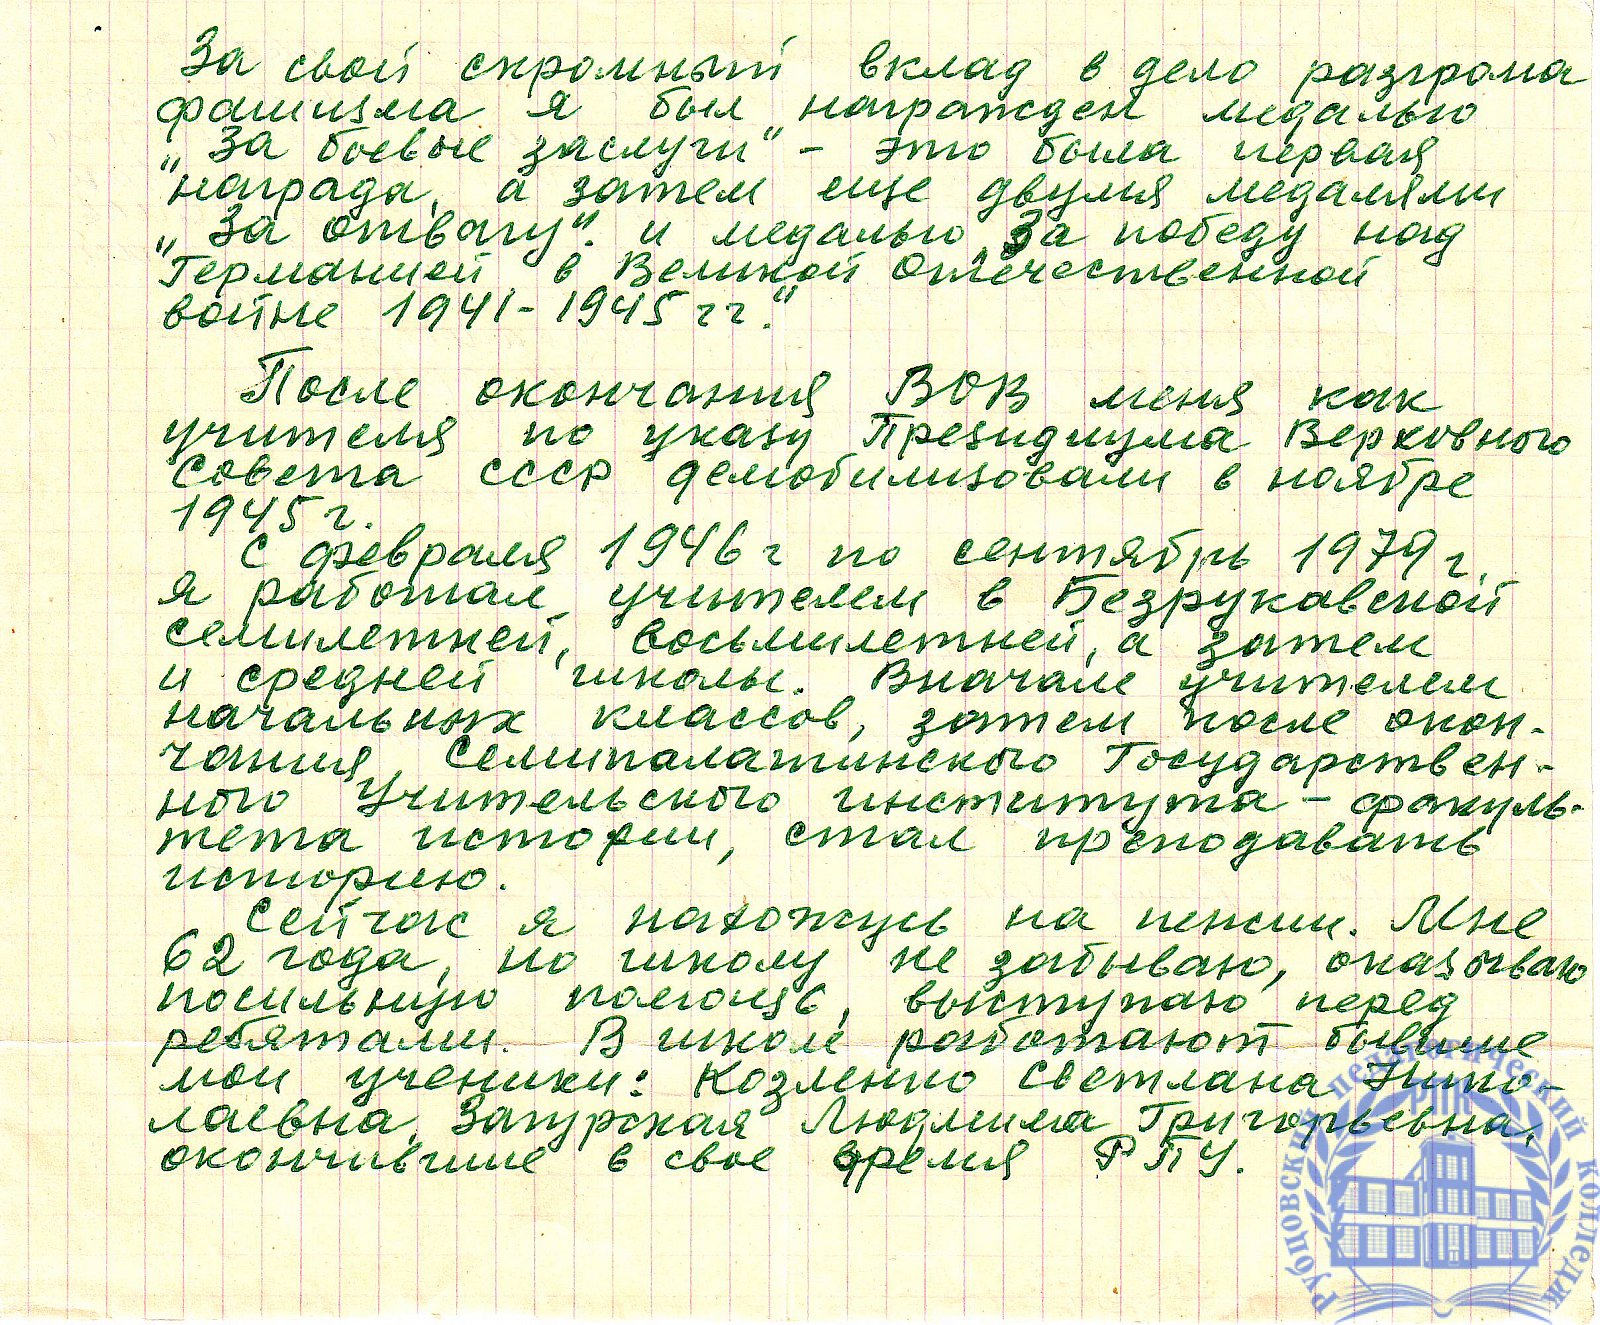 За свой скромный вклад в дело разгрома
фашизма я был награжден медалью
„За боевые заслуги" - это была первая
награда, а затем еще двумя медалями
„За отвагу". и медалью „За победу над
Германией в Великой Отечественной
войне 1941-1945 гг."
После окончания ВОВ меня как
учителя по указу Президиума Верховного
Совета СССР демобилизовали в ноябре
1945 г.
С февраля 1946 г по сентябрь 1979 г.
я работал учителем в Безрукавской
семилетней, восьмилетней, а затем
и средней школы. Вначале учителем
начальных классов, затем после окон-
чания Семипалатинского Государствен-
ного Учительского института - факуль-
тета истории, стал преподавать
историю.
Сейчас я нахожусь на пенсии. Мне
62 года, но школу не забываю, оказываю
посильную помощь, выступаю перед
ребятами. В школе работают бывшие
мои ученики: Козленко Светлана Нико-
лаевна, Загурская Людмила Григорьевна,
окончившие в свое время РПУ.
Рубцовский педагогический колледж
РПК